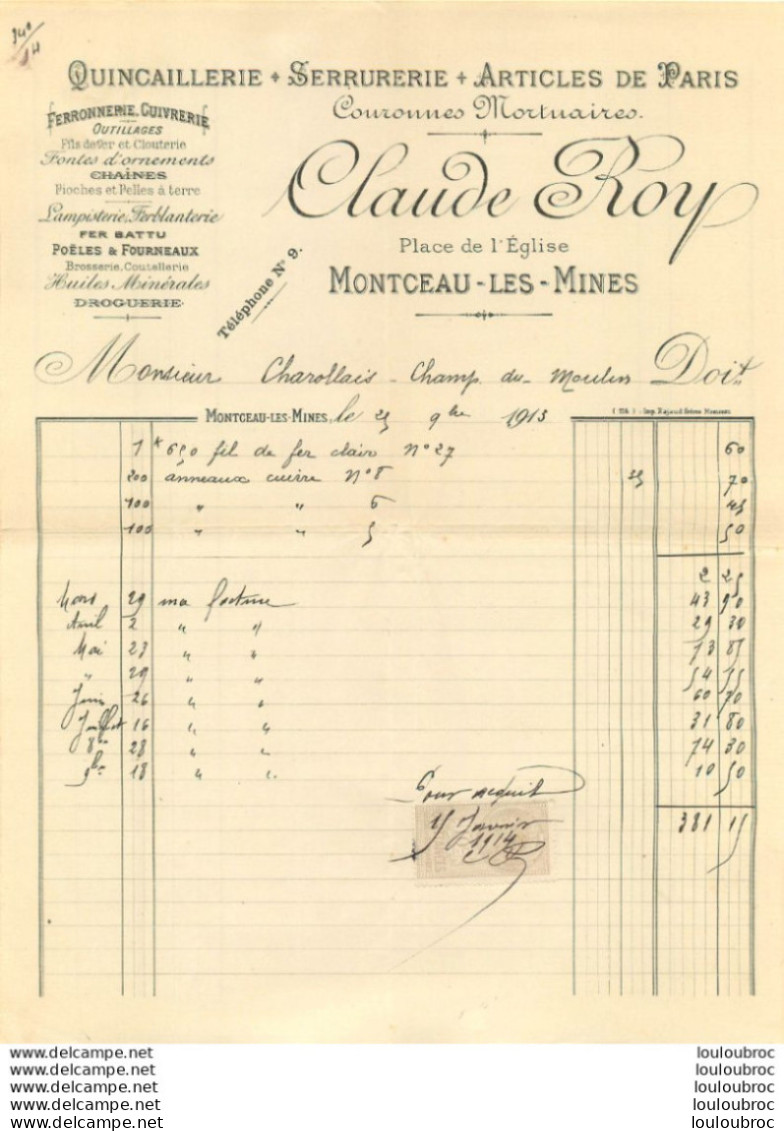 QUINCAILLERIE + SERRURERIE + ARTICLES DE PARIS
Couronnes Mortuaires.
FERRONNERIE, CUIVRERIE
OUTILLAGES
Fils de fer et Clouterie
Fontes d'ornements
CHAÎNES
Pioches et Pelles à terre
Lampisterie, Ferblanterie
FER BATTU
POÊLES & FOURNEAUX
Brosserie, Coutellerie
Huiles Minérales
DROGUERIE
Claude Roy
Place de l'Église
MONTCEAU-LES-MINES
Téléphone N° 9.
Monsieur Charollais - Champ du Moulin Doit
MONTCEAU-LES-MINES, le 25 9bre 1913
1 k 650 fil de fer clair N° 27 60
200 anneaux cuivre N° 8 35 70
100 " " 6 45
100 " " 5 50
2 25
Mars 29 ma facture 43 90
Avril 2 " " 29 30
Mai 23 " " 73 85
" 29 " " 54 55
Juin 26 " " 60 70
Juillet 16 " " 31 80
8bre 28 " " 74 30
9bre 18 " " 10 50
Pour acquit
15 Janvier
1914
381 15
www.delcampe.net louloubroc
www.delcampe.net louloubroc
www.delcampe.net louloubroc
www.delcampe.net louloubroc
www.delcampe.net louloubroc